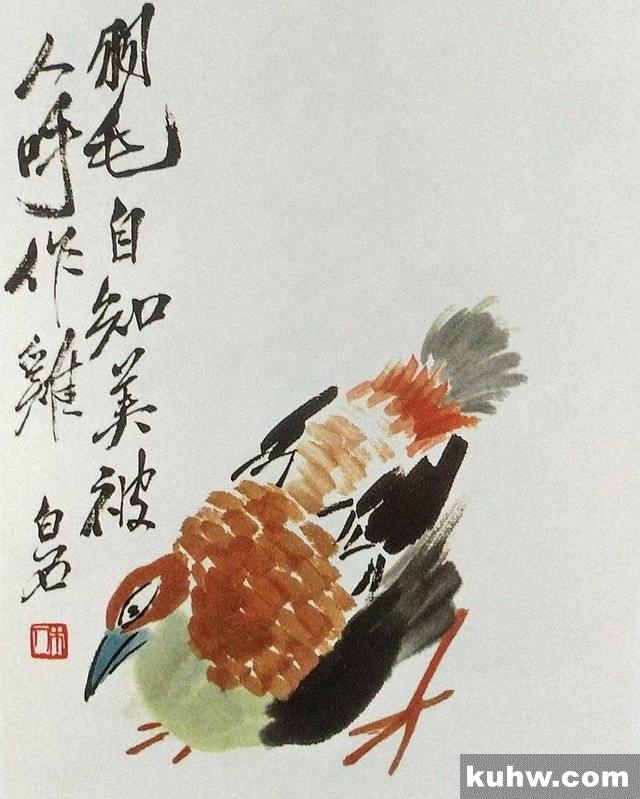 毛自知美被
人呼作雞
白石
kuhw.com